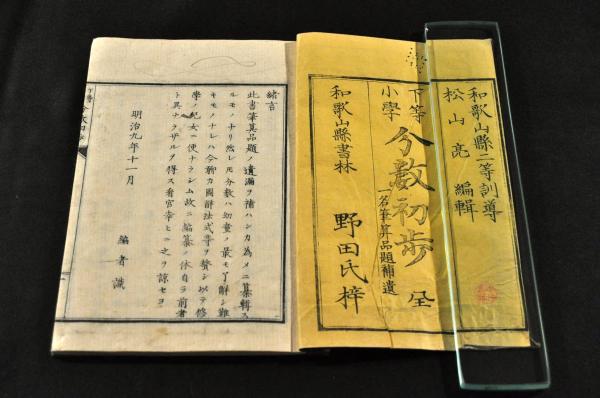 和歌山縣二等訓導
松山亮 編輯
下等
小學
分数初步 全
一名筆算品題補遺
和歌山縣書林 野田氏梓
緒言
此書筆算品題ノ遺漏ヲ補ハンカ為メニ纂輯ス
ルモノナリ然レ𪜈分数ハ幼童ノ最モ了解シ難
キモノナレハ今頗カ圖解法式等ヲ贅シ以テ修
學ノ
便ナラシム故ニ編纂ノ体自ラ前者
ト異ナラザルヲ得ス看官幸ヒニ之ヲ諒セヨ
明治九年十一月
編者識